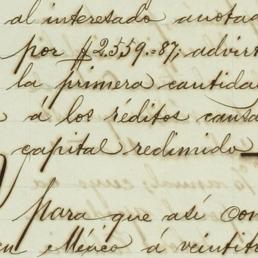 al interesado anota
por $2.559.=87; advir
la primera cantida
á los réditos caus
capital redimido
Para que así con
en México á veintit